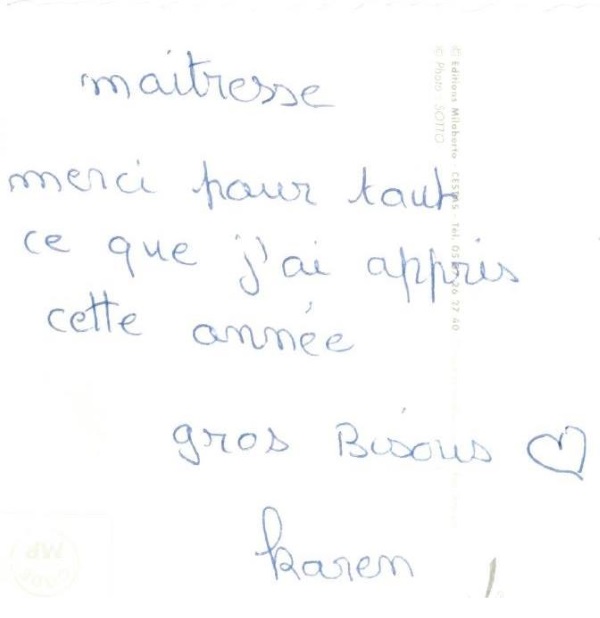 maitresse
merci pour tout
ce que j'ai appris
cette année
gros Bisous ♡
karen
© Editions Milohorto - CESTAS - Tél. 05 26 27 40
© Photo : SOTTO